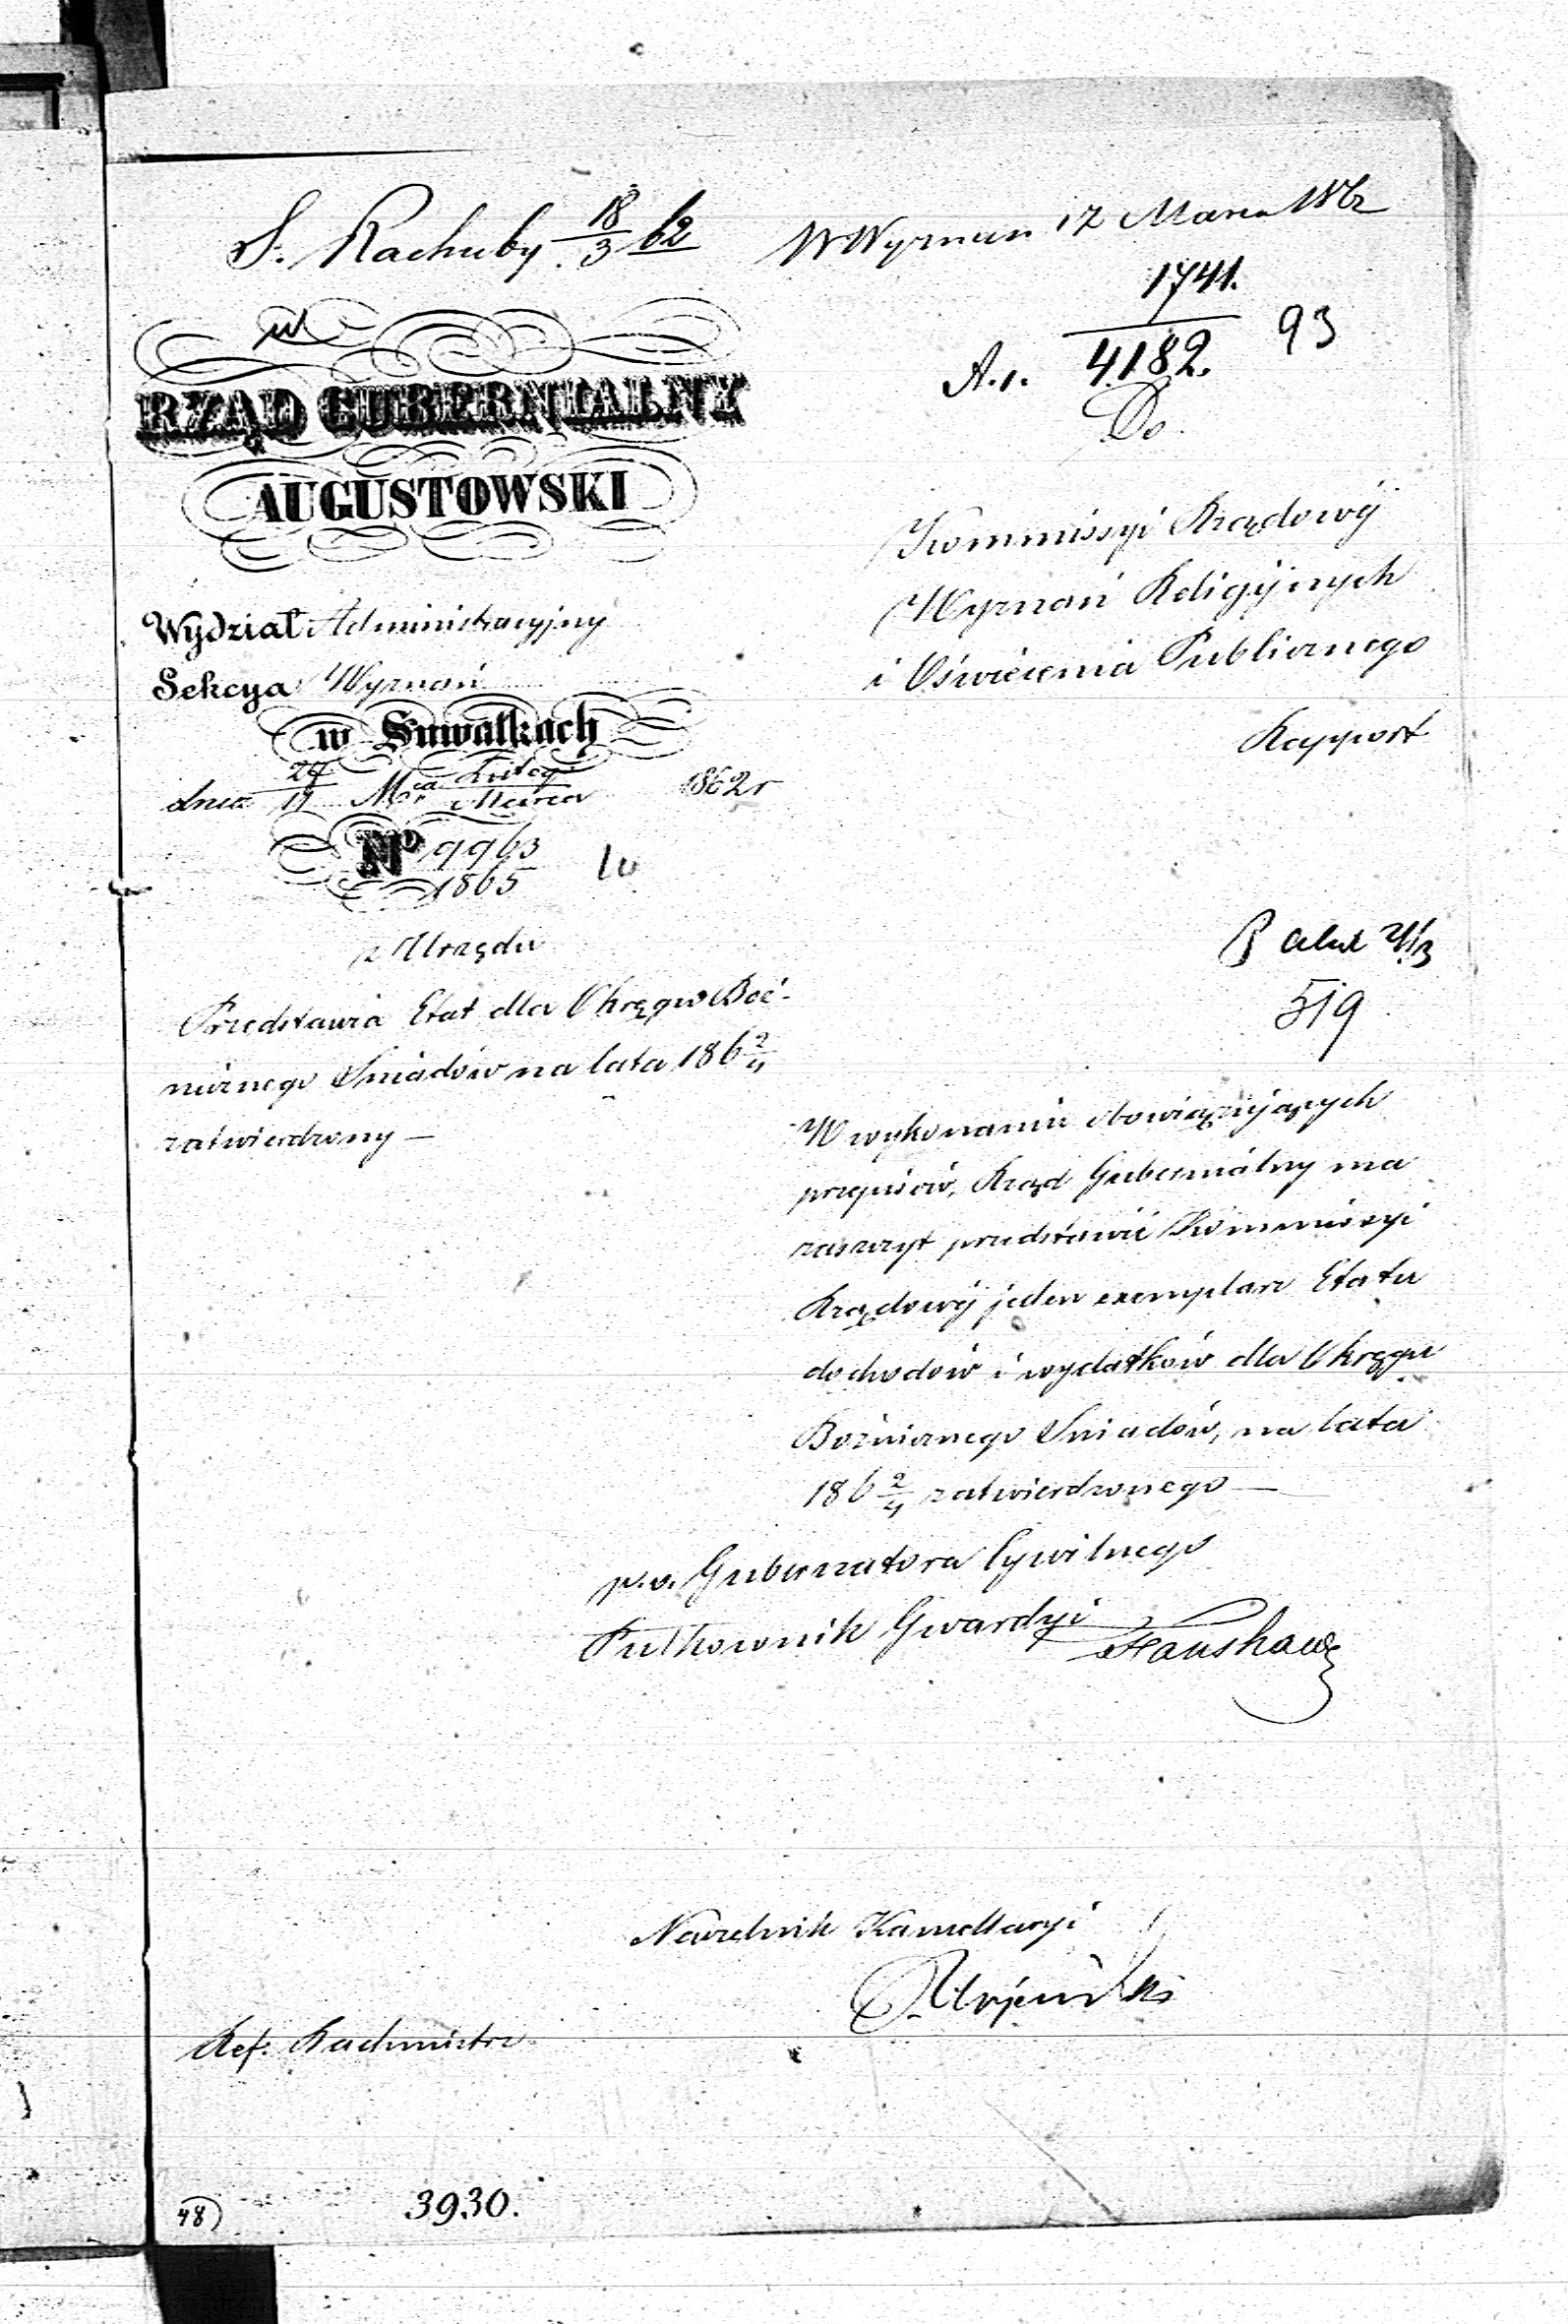 S. Rachuby 18/3 62
W Wyznań 17 Marca 1862
1741.
4182.
93
A.1.
Do
RZĄD GUBERNIALNY
AUGUSTOWSKI
Kommissyi Rządowéj
Wyznań Religijnych
i Oświecenia Publicznego
Rapport
Wydział Administracyjny
Sekcya Wyznań
w Suwałkach
dnia 27/11 Mca Lutego/Marca 1862 r
No 9963
1865
z Urzędu
519
Przedstawia Etat dla Okręgu Boż-
niczego Śniadów na lata 186 2/4
zatwierdzony —
W wykonaniu obowiązujących
przepisów, Rząd Gubernialny ma
zaszczyt przedstawić Kommissyi
Rządowéj jeden exemplarz Etatu
dochodów i wydatków dla Okręgu
Bożniczego Śniadów, na lata
186 2/4 zatwierdzonego —
p.o. Gubernatora Cywilnego
Pułkownik Gwardyi
Naczelnik Kancellaryi
Ref. Rachmistrz
48
3930.